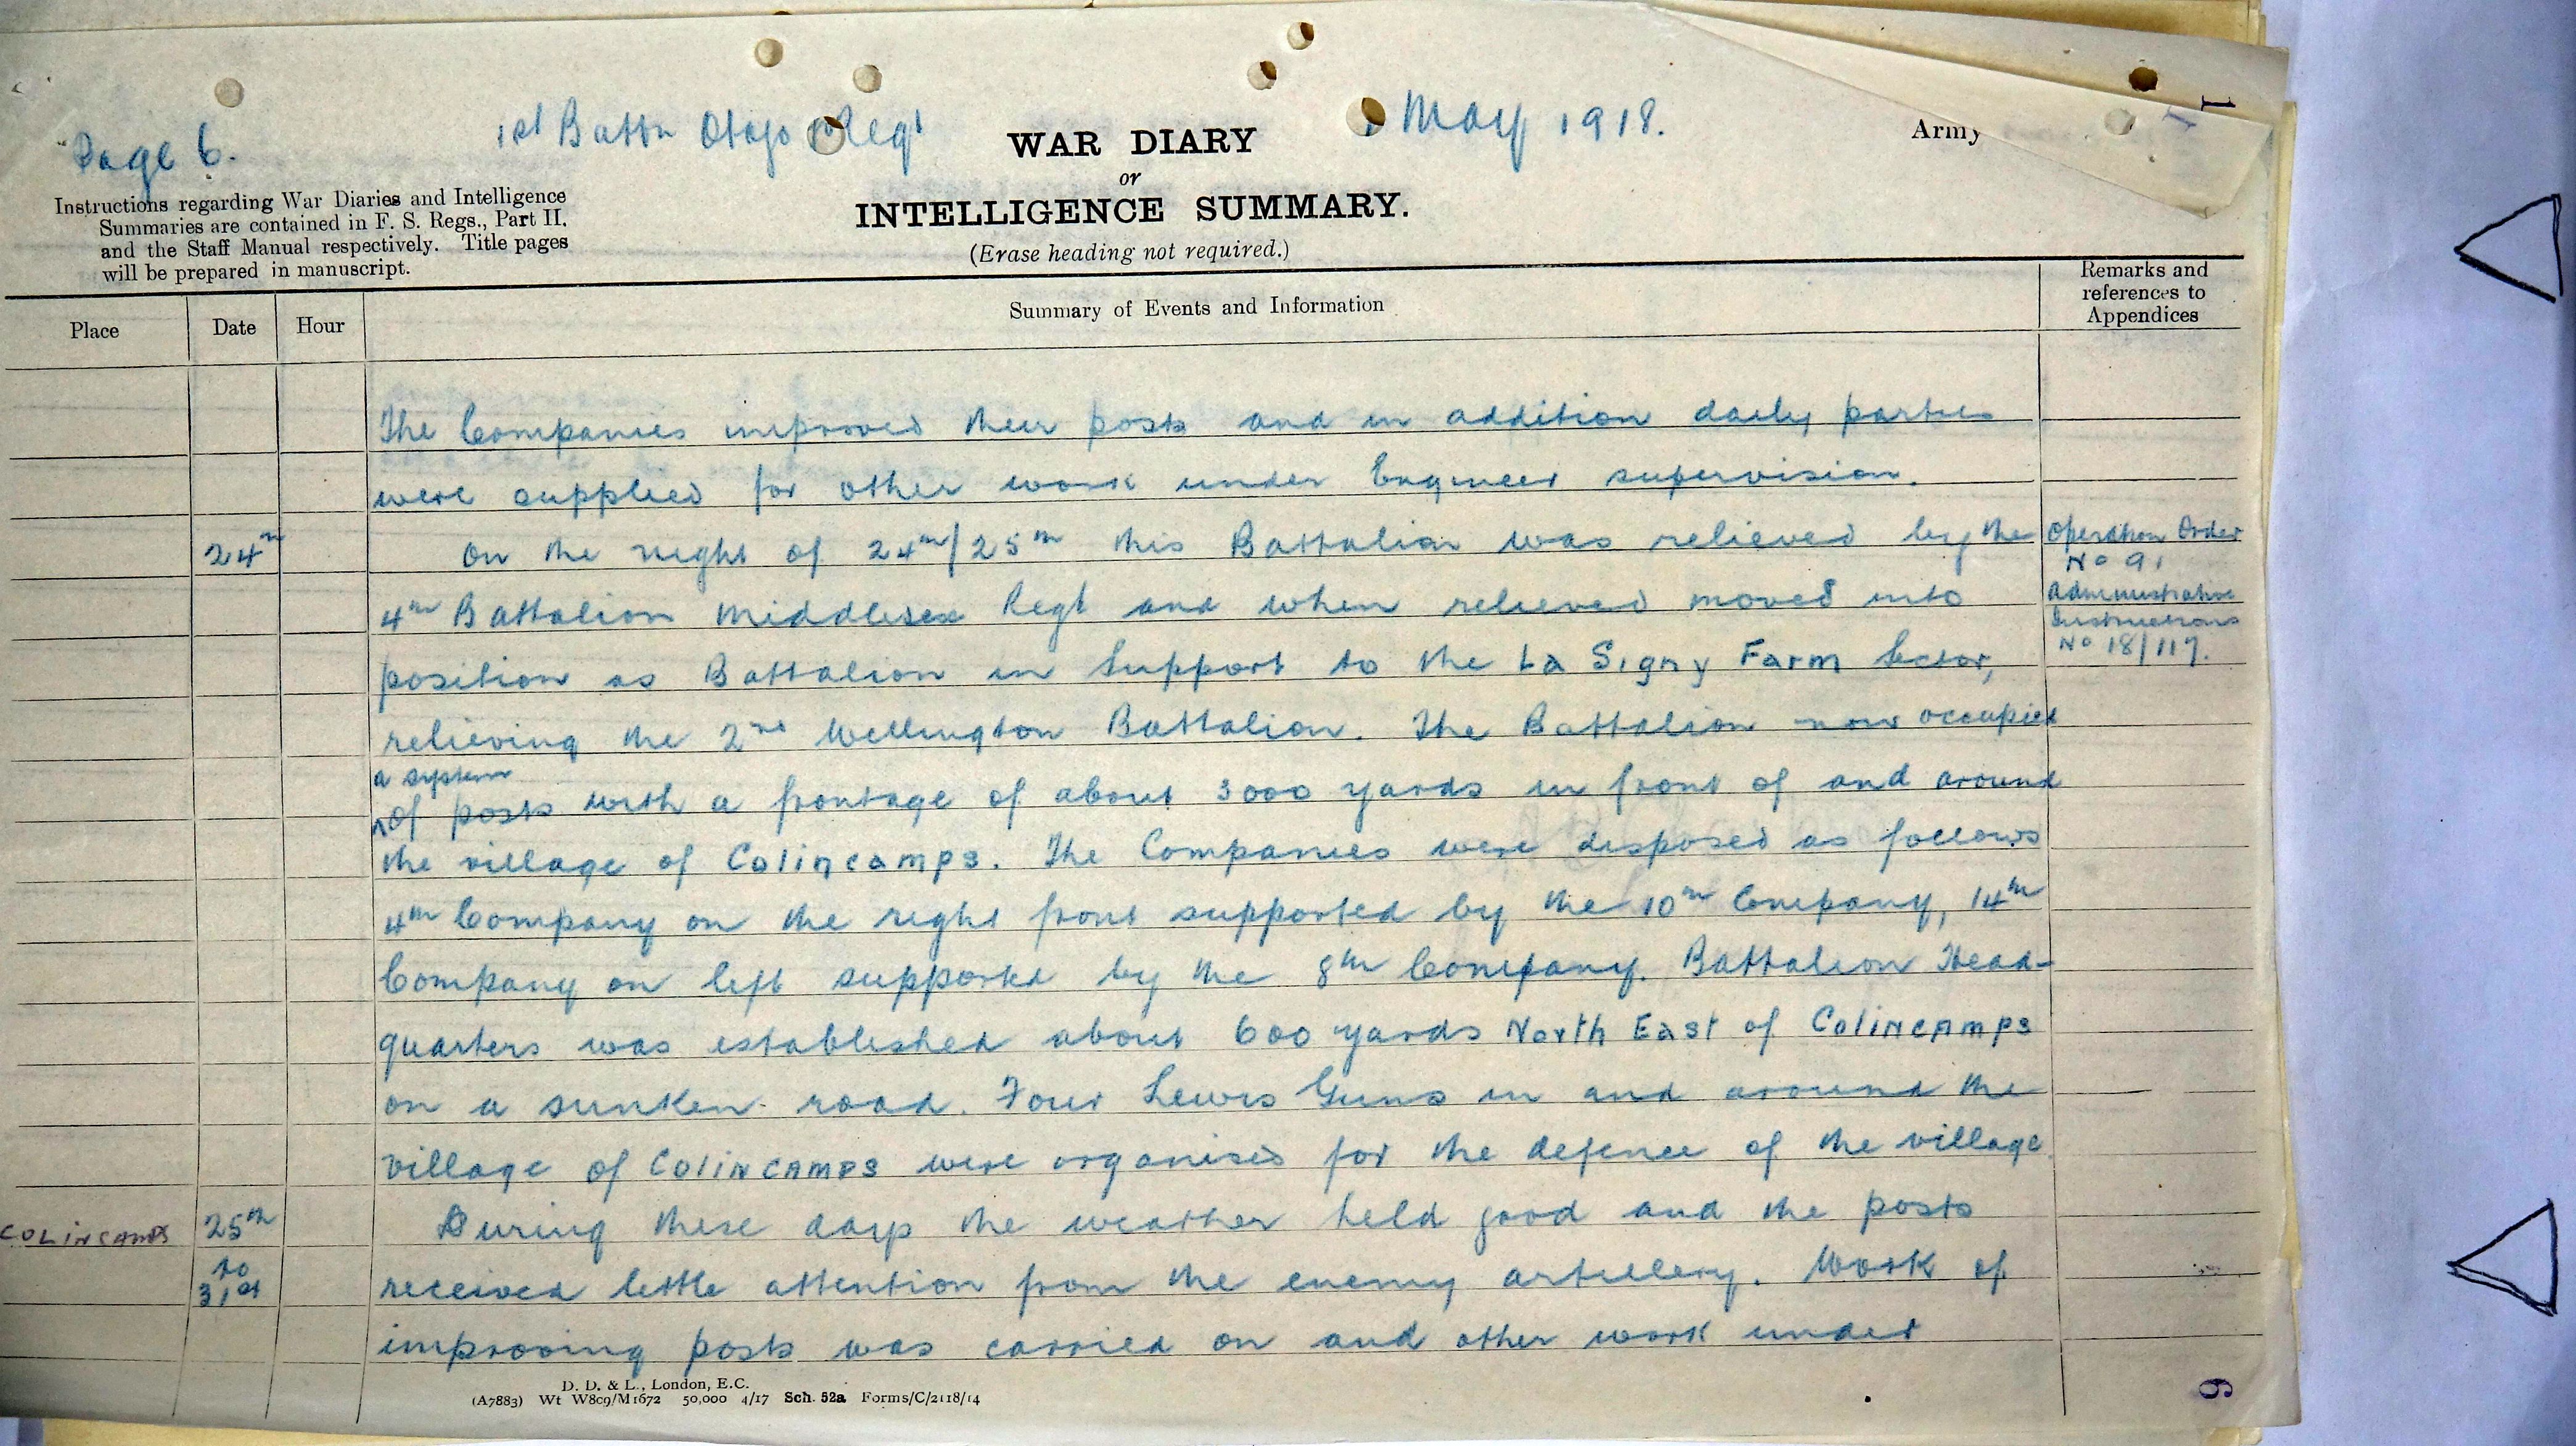 Page 6.
1st Battn Otago Regt
May 1918.
WAR DIARY
or
INTELLIGENCE SUMMARY.
(Erase heading not required.)
Army
Instructions regarding War Diaries and Intelligence
Summaries are contained in F. S. Regs., Part II.
and the Staff Manual respectively. Title pages
will be prepared in manuscript.
Place
Date
Hour
Summary of Events and Information
Remarks and
references to
Appendices
The Companies improved their posts and in addition daily parties
were supplied for other work under Engineer supervision.
24th
On the night of 24th/25th this Battalion was relieved by the
4th Battalion Middlesex Regt and when relieved moved into
position as Battalion in Support to the La Signy Farm Sector,
relieving the 2nd Wellington Battalion. The Battalion now occupied
a system
of posts with a frontage of about 3000 yards in front of and around
the village of Colincamps. The Companies were disposed as follows
4th Company on the right front supported by the 10th Company, 14th
Company on left supported by the 8th Company. Battalion Head-
quarters was established about 600 yards North East of COlINCAMPS
on a sunken road. Four Lewis Guns in and around the
village of COlINCAMPS were organised for the defence of the village
Operation Order
No 91
Administrative
Instructions
No 18/117.
COLINCAMPS
25th
to
31st
During these days the weather held good and the posts
received little attention from the enemy artillery. Work of
improving posts was carried on and other work under
D. D. & L., London, E.C.
(A7883) Wt W8c9/M1672 50,000 4/17 Sch. 52a Forms/C/2118/14
1
6